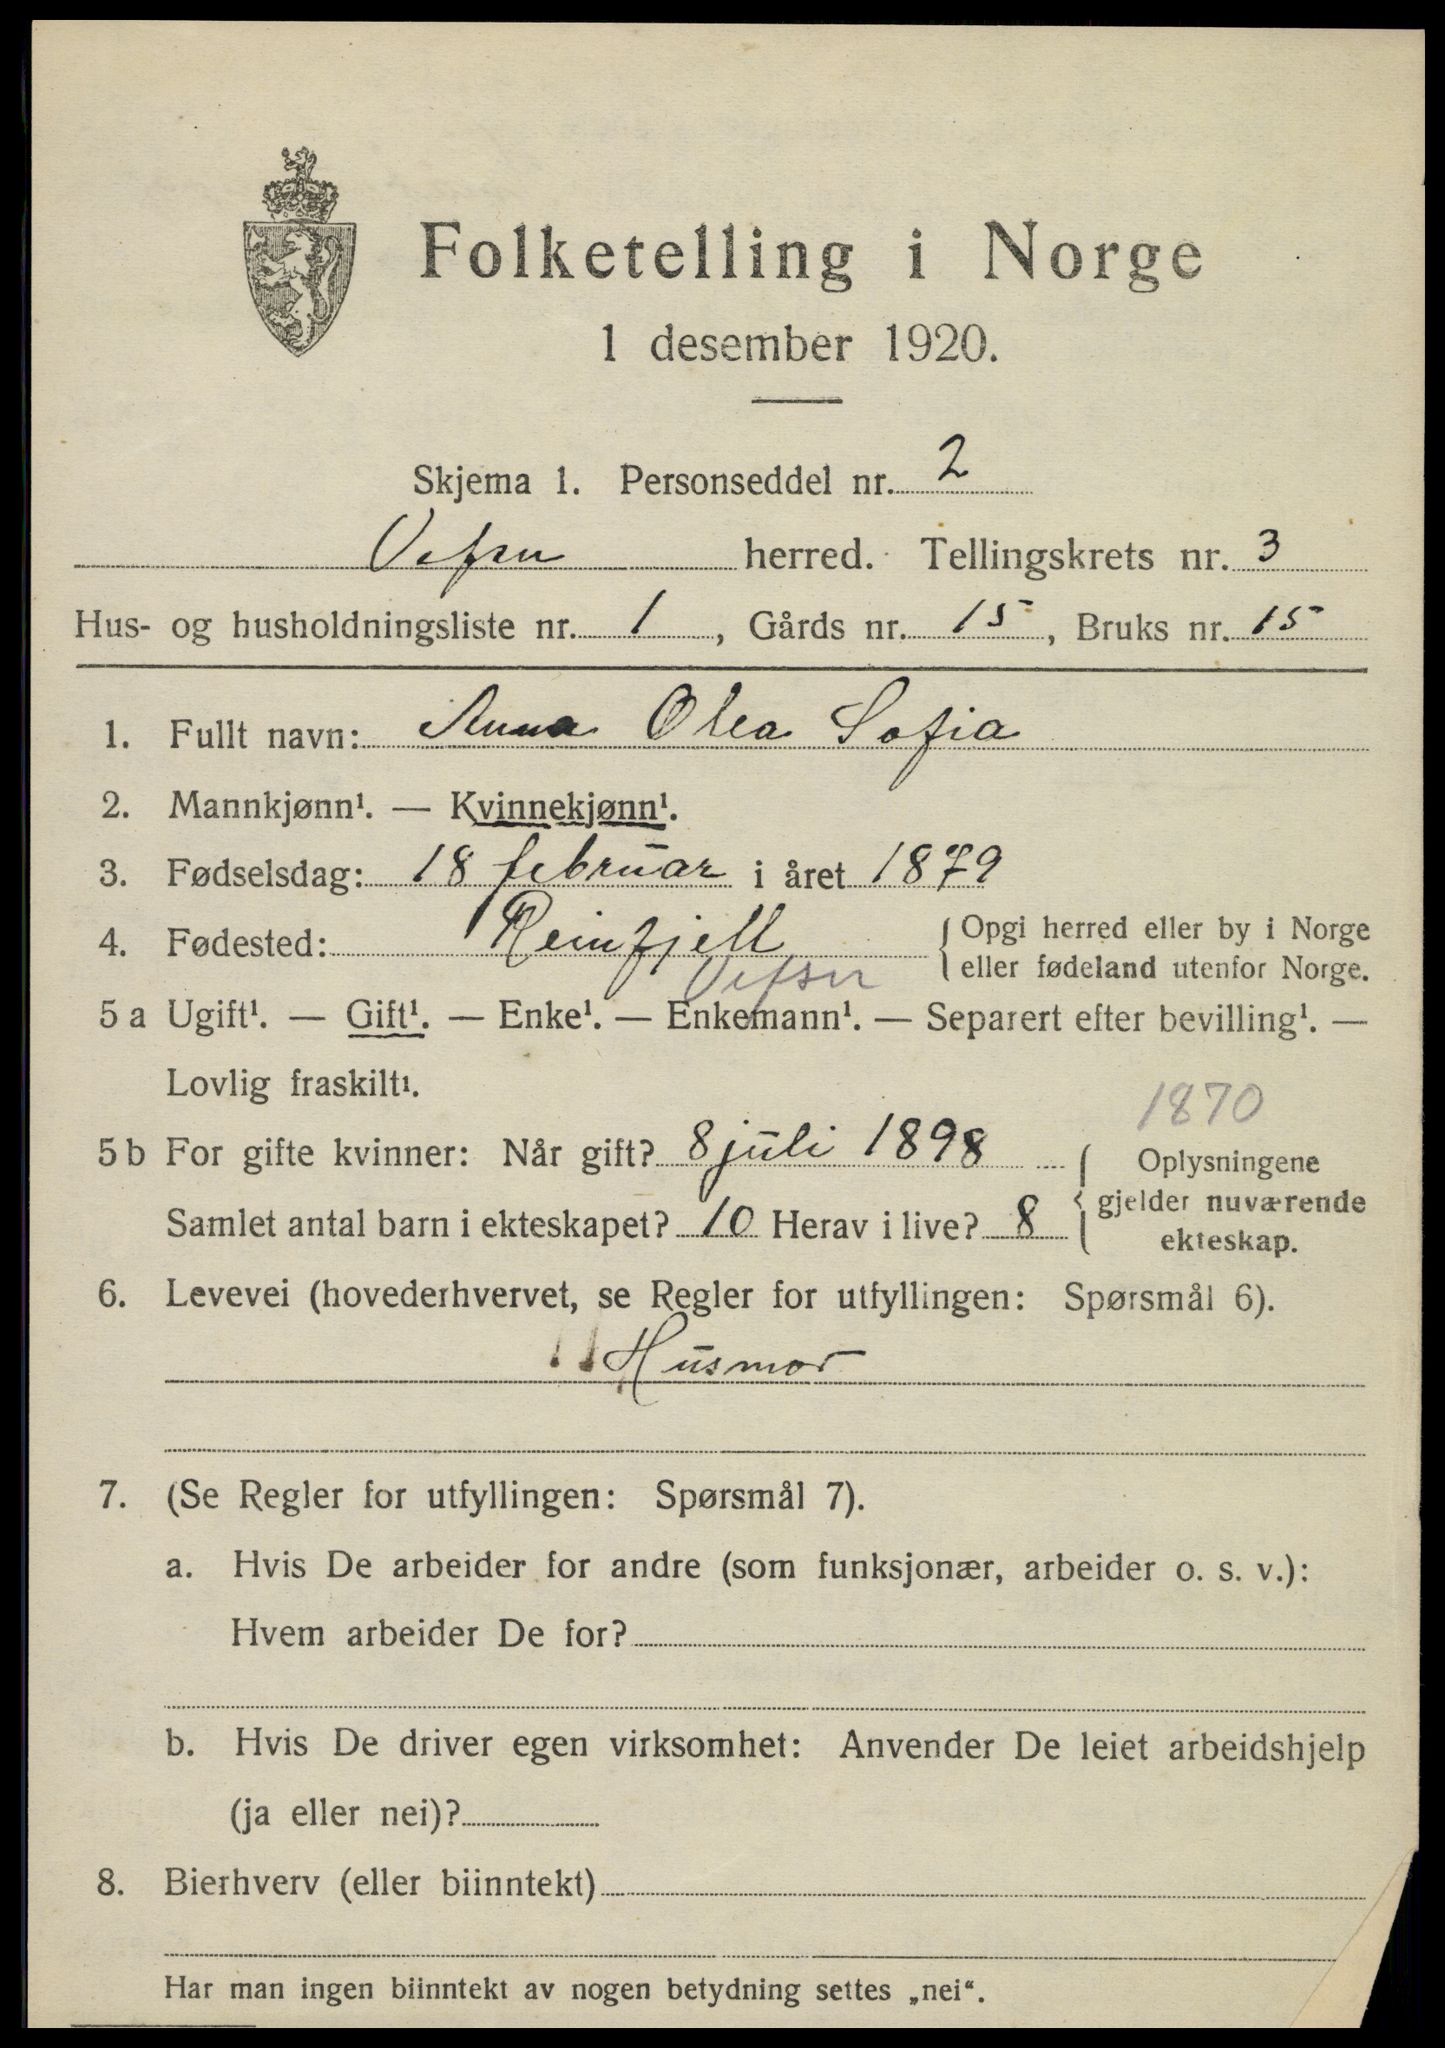 Folketelling i Norge
1 desember 1920.
Skjema 1. Personseddel nr. 2
Vefsn herred. Tellingskrets nr. 3
Hus- og husholdningsliste nr. 1, Gårds nr. 15, Bruks nr. 15
1. Fullt navn: Anna Olea Sofia
2. Mannkjønn¹. — Kvinnekjønn¹.
3. Fødselsdag: 18 februar i året 1879
4. Fødested: Reinfjell { Opgi herred eller by i Norge
eller fødeland utenfor Norge.
Vefsn
5 a Ugift¹. — Gift¹. — Enke¹. — Enkemann¹. — Separert efter bevilling¹. —
Lovlig fraskilt¹.
1870
5 b For gifte kvinner: Når gift? 8 juli 1898 { Oplysningene
gjelder nuværende
ekteskap.
Samlet antal barn i ekteskapet? 10 Herav i live? 8
6. Levevei (hovederhvervet, se Regler for utfyllingen: Spørsmål 6).
Husmor
7. (Se Regler for utfyllingen: Spørsmål 7).
a. Hvis De arbeider for andre (som funksjonær, arbeider o. s. v.):
Hvem arbeider De for?
b. Hvis De driver egen virksomhet: Anvender De leiet arbeidshjelp
(ja eller nei)?
8. Bierhverv (eller biinntekt)
Har man ingen biinntekt av nogen betydning settes „nei“.